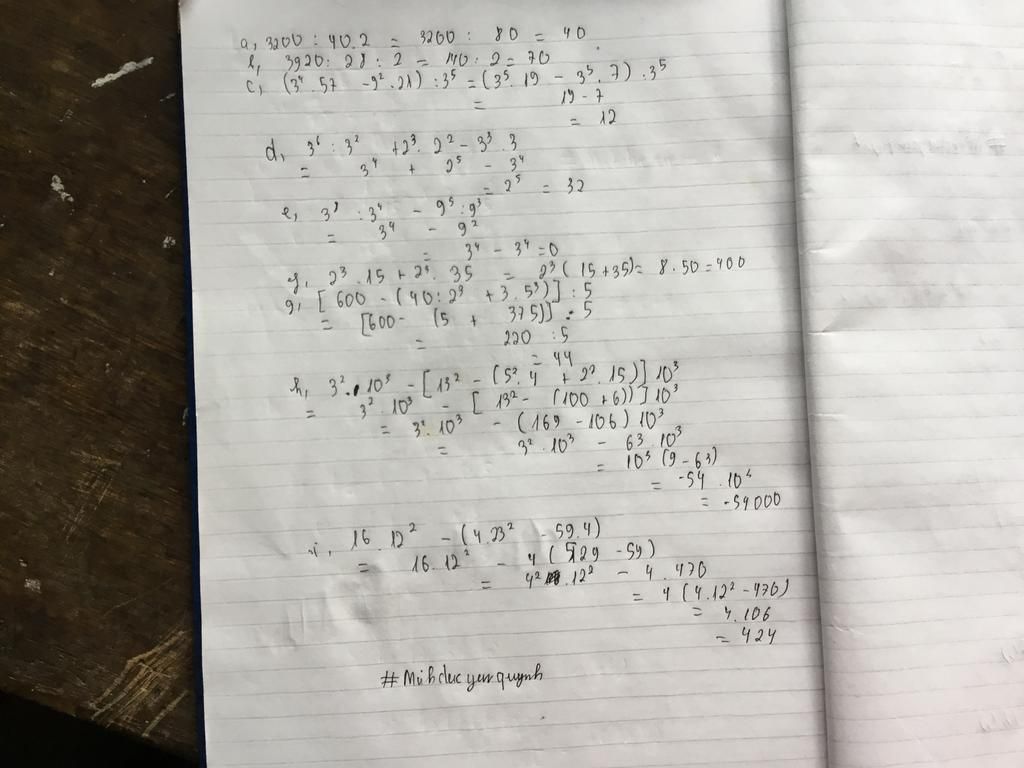 a, 3200 : 40.2 = 3200 : 80 = 40
b, 3920 : 28 : 2 = 140 : 2 = 70
c, (3⁴ . 57 - 9² . 21) : 3⁵ = (3⁵ . 19 - 3⁵ . 7) : 3⁵
= 19 - 7
= 12
d, 3⁶ : 3² + 2³ . 2² - 3³ 3
= 3⁴ + 2⁵ - 3⁴
= 2⁵ = 32
e, 3⁸ : 3⁴ - 9⁵ : 9³
= 3⁴ - 9²
= 3⁴ - 3⁴ = 0
f, 2³ . 15 + 2³ . 35 = 2³ ( 15 + 35) = 8 . 50 = 400
g, [600 - (40 : 2³ + 3 . 5³)] : 5
= [600 - (5 + 375)] : 5
= 220 : 5
= 44
h, 3² . 10³ - [13² - (5² . 4 + 2² . 15)] 10³
= 3² 10³ - [ 13² - (100 + 6))] 10³
= 3² . 10³ - (169 - 106) 10³
= 3² . 10³ - 63 . 10³
= 10³ (9 - 63)
= -54 . 10³
= -54000
i, 16 . 12² - (4 . 23² - 59 . 4)
= 16 . 12² - 4 (529 - 59)
= 4² . 12² - 4 . 470
= 4 (4 . 12² - 470)
= 4 . 106
= 424